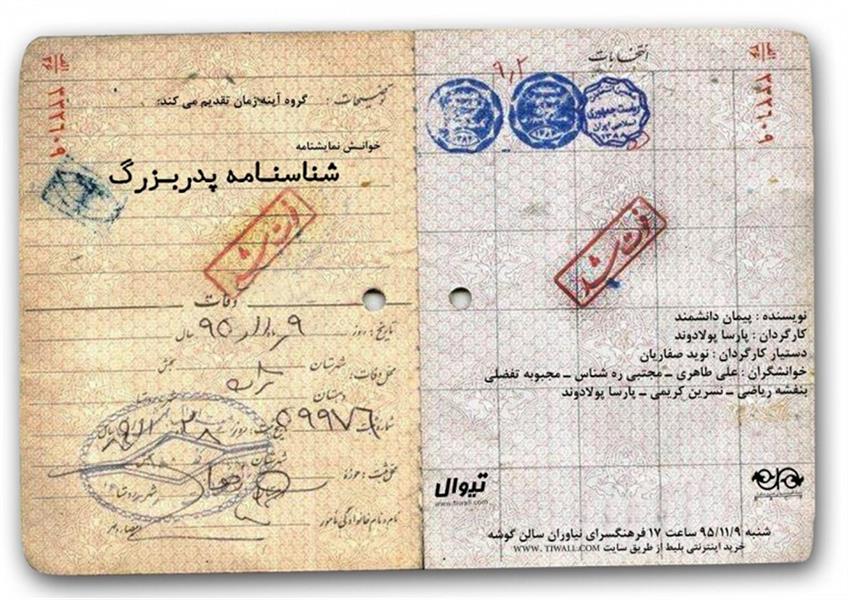 انتخابات
۹٫۲
ریاست جمهوری
اسلامی ایران
۱۳۸۸
۳۲۲۶۰۹
فوت شد
نویسنده : پیمان دانشمند
کارگردان : پارسا پولادوند
دستیار کارگردان : نوید صفاریان
خوانشگران : علی طاهری ـ مجتبی ره شناس ـ محبوبه تفضلی
بنفشه ریاضی ـ نسرین کریمی ـ پارسا پولادوند
تیوال
www.tiwall.com
شنبه ۹۵/۱۱/۹ ساعت ۱۷ فرهنگسرای نیاوران سالن گوشه
خرید اینترنتی بلیط از طریق سایت WWW. TIWALL.COM
توضیحات : گروه آینه زمان تقدیم می کند:
خوانـش نمایشنامه
شناسنـامه پدربـزرگ
۳۲۲۶۰۹
فوت شد
وفات
تاریخ : روز ۹ ر ۱۱ ر ۹۵ سال
محل وفات : شهرستان بخش
دهستان
محل ثبت : حوزه
نام و نام خانوادگی مامور